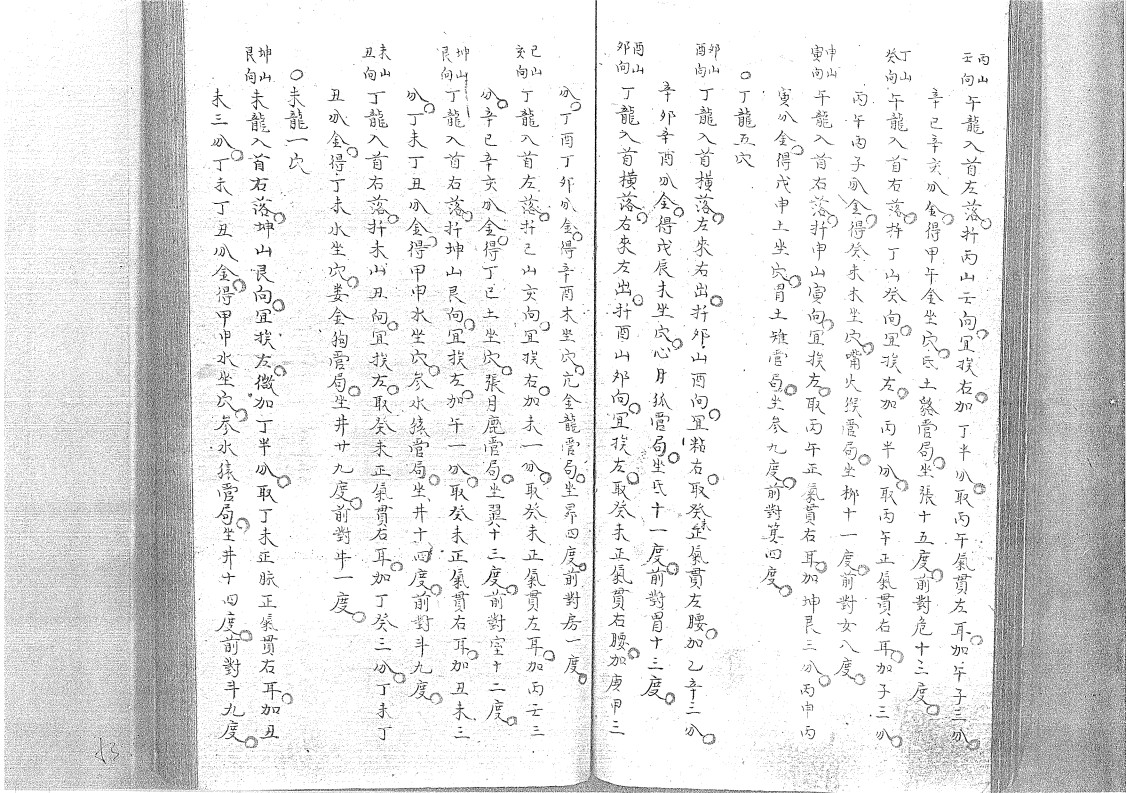 丙山壬向 午龍入首左落。扦丙山壬向。宜挨右加丁半分。取丙午氣貫左耳。加午子三分。
辛巳辛亥分金。得甲午金坐穴。氐土貉管局。坐張十五度。前對危十三度。
丁山癸向 午龍入首右落。扦丁山癸向。宜挨左加丙半分。取丙午正氣貫右耳。加子三分。
丙午丙子分金。得癸未木坐穴。觜火猴管局。坐柳十一度。前對女八度。
申山寅向 午龍入首右落。扦申山寅向。宜挨左。取丙午正氣貫右耳。加坤艮三分。丙申丙
寅分金。得戊申土坐穴。胃土雉管局。坐參九度。前對箕四度。
○丁龍五穴
卯山酉向 丁龍入首橫落。左來右出。扦卯山酉向。宜粘右。取癸未正氣貫左腰。加乙辛三分。
辛卯辛酉分金。得戊辰木坐穴。心月狐管局。坐氐十一度。前對胃十三度。
酉山卯向 丁龍入首橫落。右來左出。扦酉山卯向。宜挨左。取癸未正氣貫右腰。加庚甲三
分。丁酉丁卯分金。得辛酉木坐穴。亢金龍管局。坐昴四度。前對房一度。
巳山亥向 丁龍入首左落。扦巳山亥向。宜挨右加未一分。取癸未正氣貫左耳。加丙壬三
分。辛巳辛亥分金。得丁巳土坐穴。張月鹿管局。坐翼十三度。前對室十二度。
坤山艮向 丁龍入首右落。扦坤山艮向。宜挨左加午一分。取癸未正氣貫右耳。加丑未三
分。丁未丁丑分金。得甲申水坐穴。參水猿管局。坐井十四度。前對斗九度。
未山丑向 丁龍入首右落。扦未山丑向。宜挨左。取癸未正氣貫右耳。加丁癸三分。丁未丁
丑分金。得丁未水坐穴。婁金狗管局。坐井廿九度。前對牛一度。
○未龍一穴
坤山艮向 未龍入首右落。坤山艮向。宜挨左。微加丁半分。取丁未正脈正氣貫右耳。加丑
未三分。丁未丁丑分金。得甲申水坐穴。參水猿管局。坐井十四度。前對斗九度。